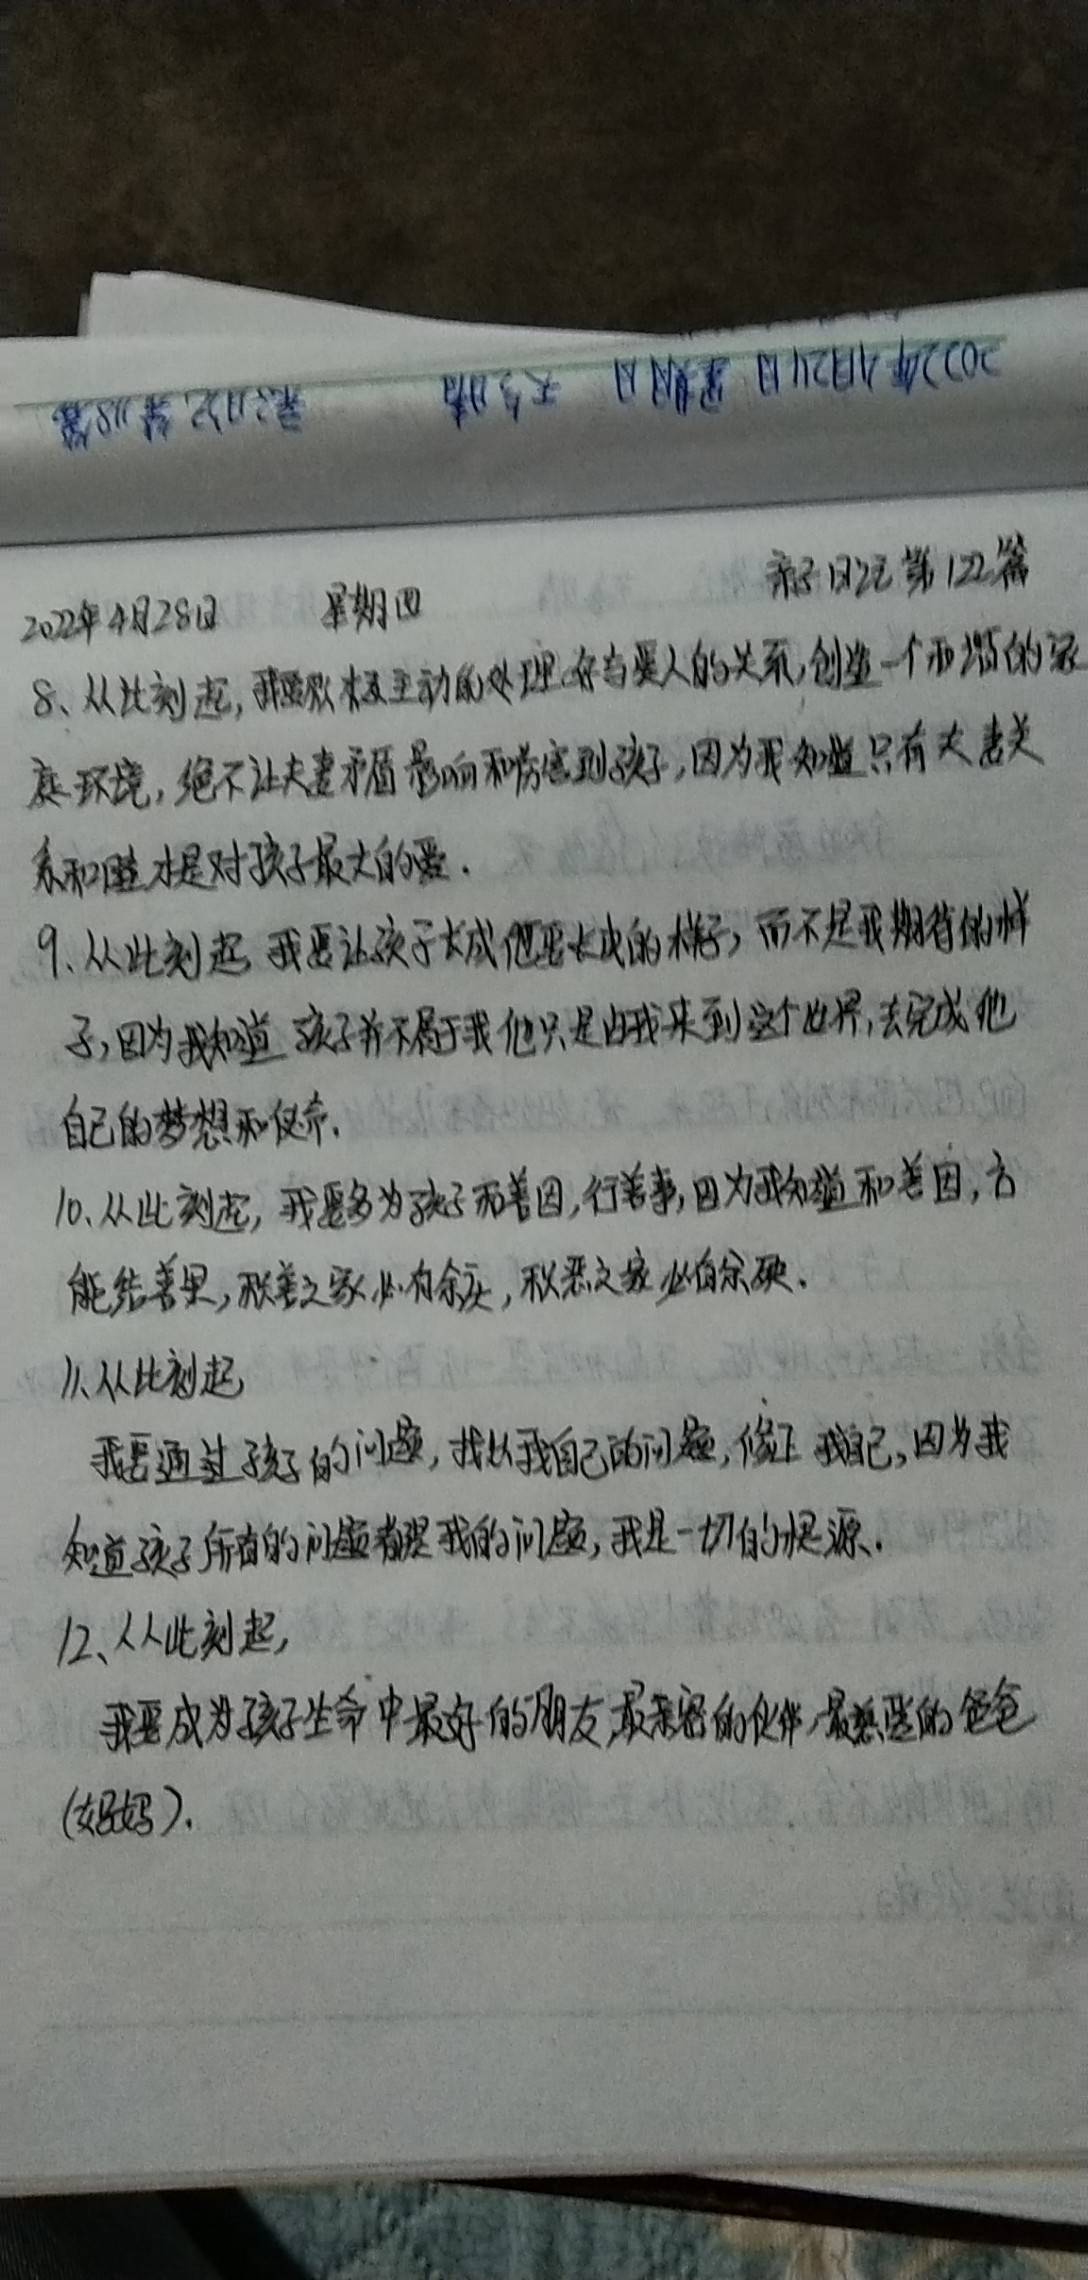 2022年4月24日 星期日 天气晴 亲子日记第118篇
2022年4月28日 星期四 亲子日记第122篇
8、从此刻起,我要积极主动的处理好与爱人的关系,创造一个和谐的家
庭环境,绝不让夫妻矛盾影响和伤害到孩子,因为我知道只有夫妻关
系和睦才是对孩子最大的爱.
9、从此刻起,我要让孩子长成他要长成的样子,而不是我期待的样
子,因为我知道 孩子并不属于我他只是由我来到这个世界,去完成他
自己的梦想和使命.
10、从此刻起,我要多为孩子种善因,行善事,因为我知道种善因,方
能结善果,积善之家必有余庆,积恶之家必有余殃.
11、从此刻起
我要通过孩子的问题,找从我自己的问题,修正我自己,因为我
知道孩子所有的问题都是我的问题,我是一切的根源.
12、从此刻起,
我要成为孩子生命中最好的朋友,最亲密的伙伴,最慈爱的爸爸
(妈妈).